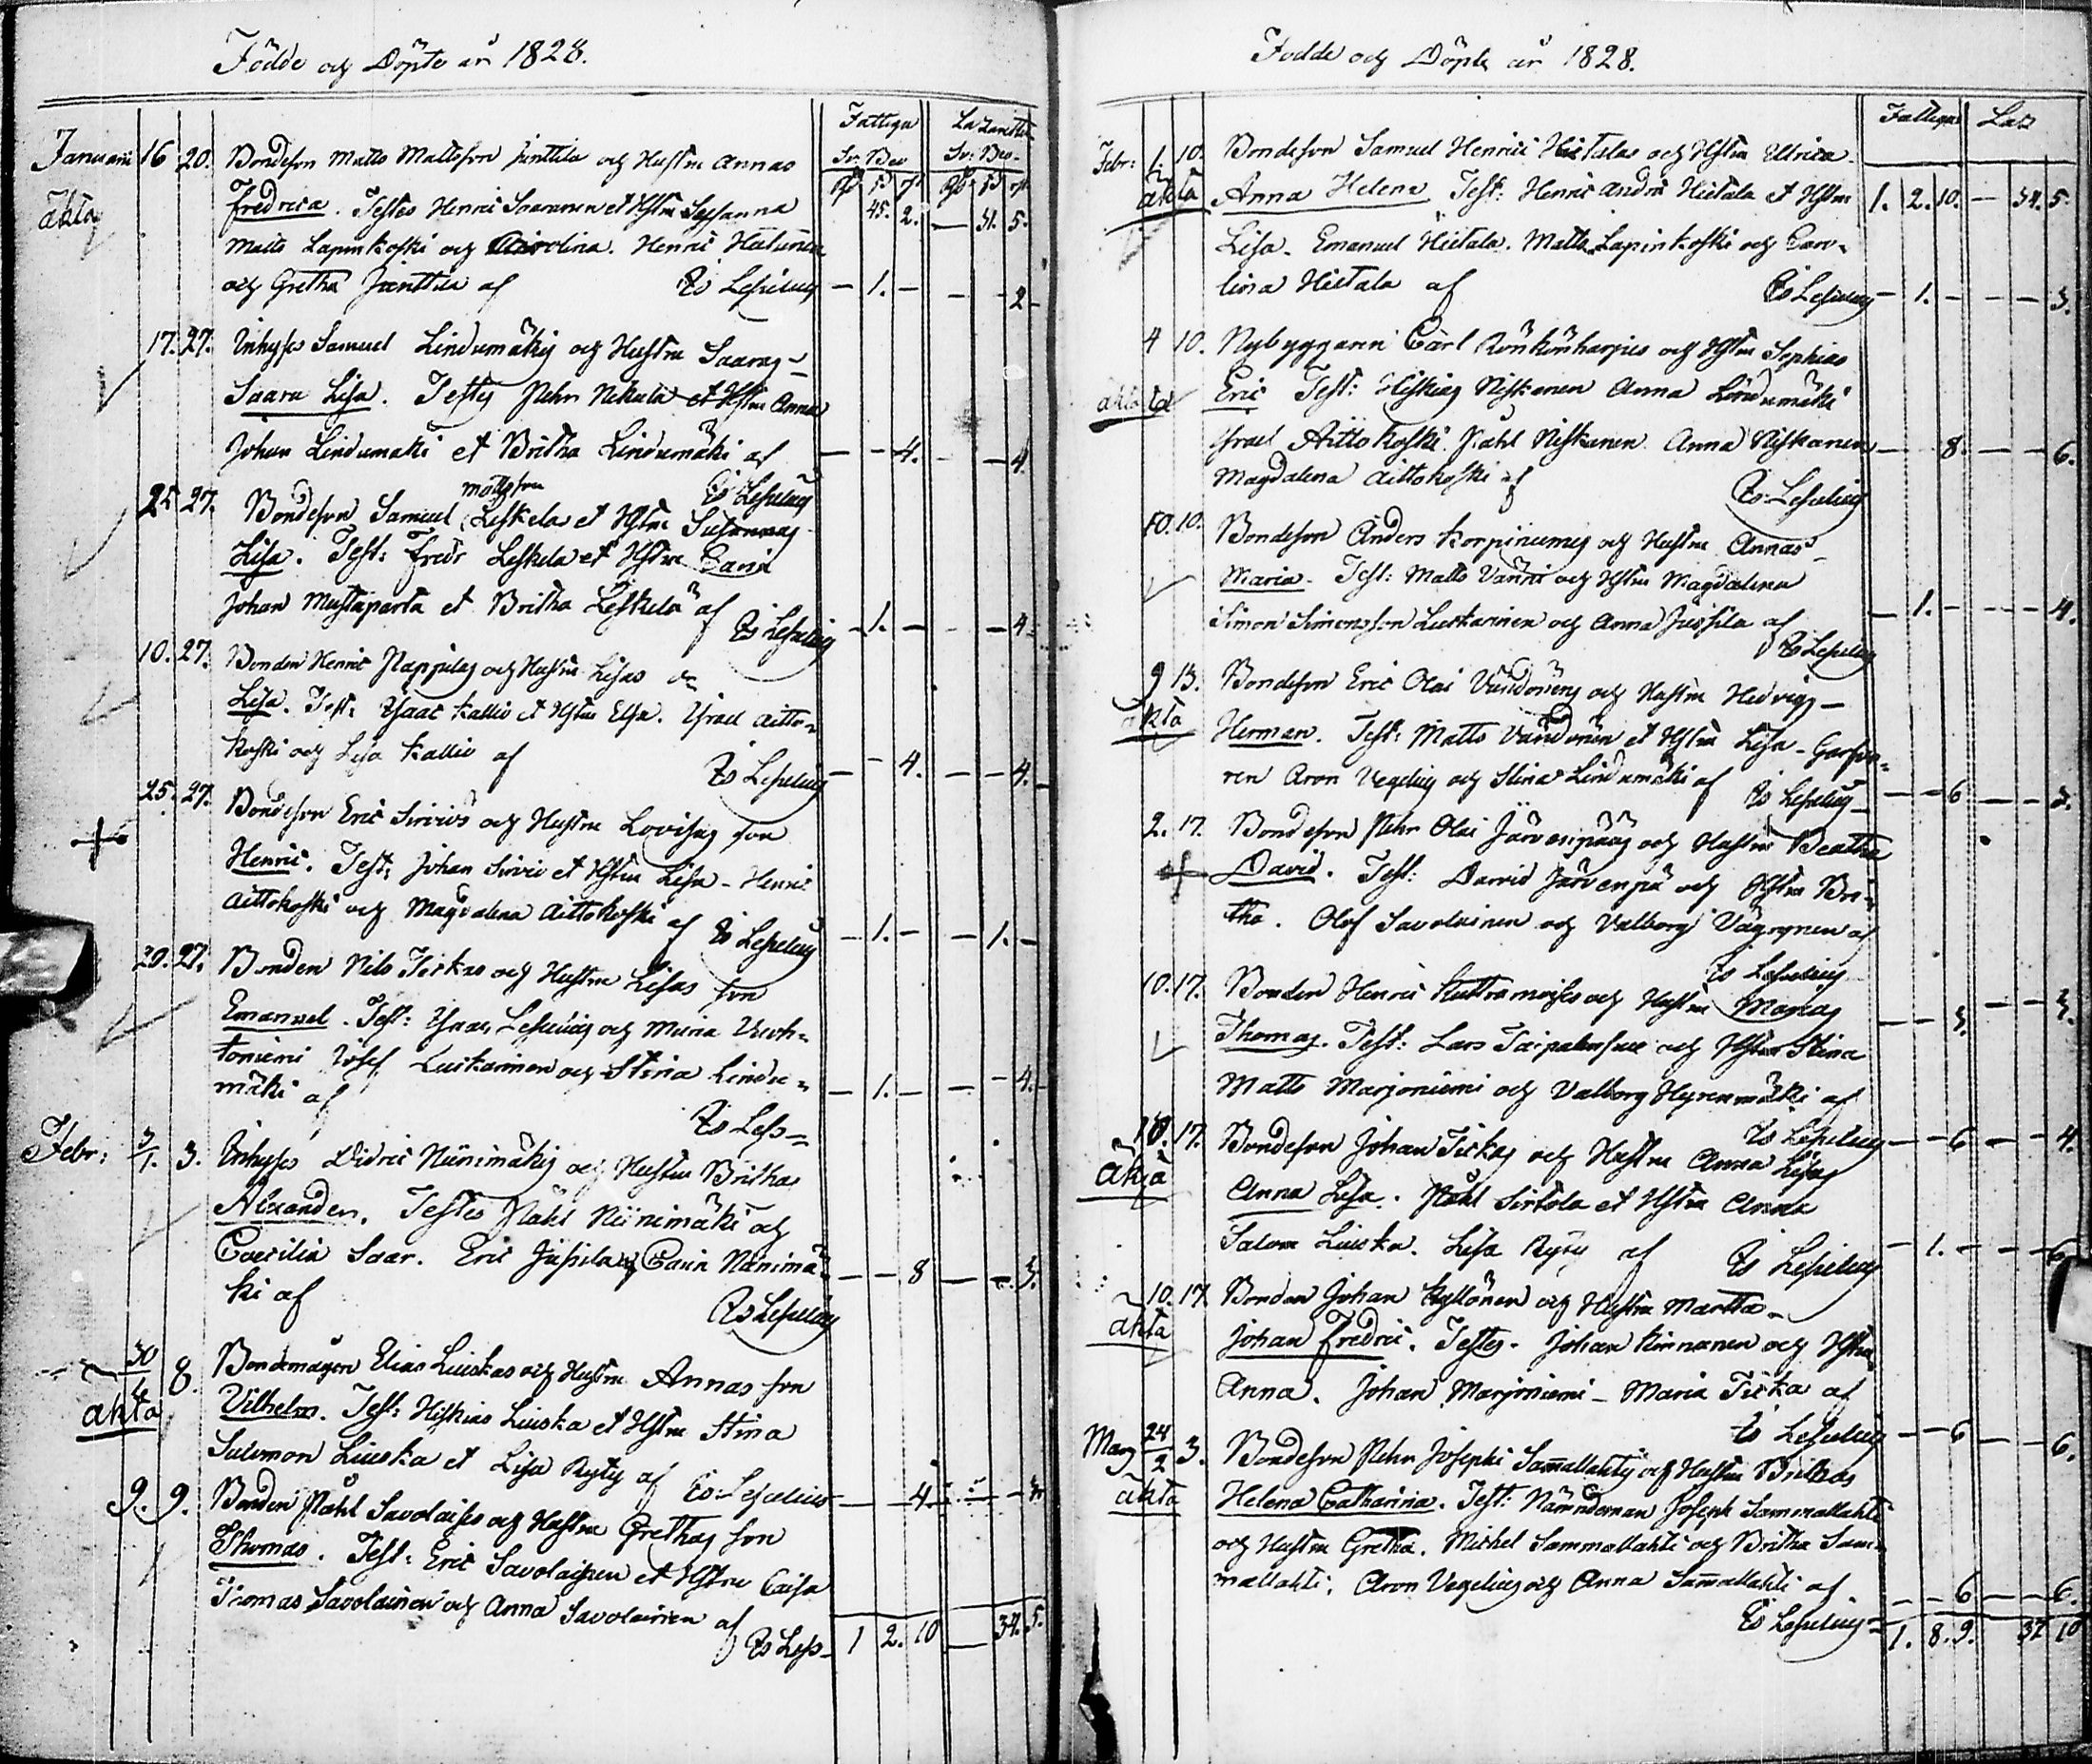 Födde och Döpte år 1828.
Fattiga Lazarettet
Sv: Bco Sv: Bco
Januarii 16 20. Bondeson Matts Mattsson Junttila och Hustru Annas
äkta Fredrica. Testes Henric Soaranen et Hstru Susanna 45. 2. — 31. 5.
Matts Lapinkoski och Carolina. Henric
och Gretha Junttila af Es Lesselius — 1. — — — 2
17. 27. Inhyses Samuel Lindumäkis och Hustru Saaras
Saara Lisa. Testes Pehr Nikula et Hstru Anna
Johan Lindumäki et Britha Lindumäki af — — 4. — — 4.
Es Lesselius
25 27. Bondeson Samuel Mattsson Leskelas et Hstru Susannas
Lisa. Test: Fredr Leskela et Hstru Carin
Johan Mustaparta et Britha Leskelä af — 1. — — — 4.
Es Lesselius
10. 27. Bonden Henric Pappilas och Hustru Lisas dr
Lisa. Test: Isaac Kallio et Hstru Elsa. Israel Aitto-
koski och Lisa Kallio af Es Lesselius — — 4. — — 4.
25. 27. Bondeson Eric Sirviös och Hustru Lovisas son
Henric. Test: Johan Sirviö et Hstru Lisa - Henric
Aittokoski och Magdalena Aittokoski af Es Lesselius — 1. — — 1. —
20. 27. Bonden Nils Tickas och Hustru Lisas son
Emanuel. Test: Isaac Lesselius och Maria Vuoh-
toniemi Josef Luskarinen och Stina Lindu-
mäki af — 1. — — — 4.
Es Less-
Febr: 3/1. 3. Inhyses Didric Niinimäkis och Hustru Brithas
Alexander. Testes Påhl Niinimäki och
Caecilia Saar. Eric Jussila och Carin Niinimä-
ki af — — 8 — — 3.
Es Lesselius
30/1 8. Bondemågen Elias Liuskas och Hustru Annas son
äkta Vilhelm. Test: Hiskias Liuska et Hstru Stina
Salomon Liuska et Lisa Ryty af Es Lesselius — — 4
9. 9. Bonden Påhl Savolaises och Hustru Grethas son
Thomas. Test: Eric Savolainen et Hstru Caisa
Thomas Savolainen och Anna Savolainen af
Es Less- 1 2. 10 — 34. 5.
Födde och Döpte år 1828.
Fattiga Laz
Febr: 1. 10. Bondeson Samuel Henrici Hietalas och Hstru Ulrica
äkta Anna Helena Test: Henric Andrs Hietala et Hstru 1. 2. 10. — 34. 5.
Lisa. Emanuel Hietala. Matts Lapinkoski och Caro-
lina Hietala af Es Lesselius — 1. — — — 3.
4 10. Nybyggaren Carl Rönkönharjus och Hstru Sophias
äkta Eric Test: Hiskias Niskanen Anna Lindumäki
Israel Aittokoski Påhl Niskanen Anna Niskanen — — 8. — — 6.
Magdalena Aittokoski af Es Lesselius
10. 10. Bondeson Anders Korpiniemis och Hustru Annas
Maria. Test: Matts Vänni och Hstru Magdalena
Simon Simonsson Luskarinen och Anna Jussila af — 1. — — — 4.
Es Lesselius
9 13. Bondeson Eric Olai Väüdönens och Hustru Hedvigs
äkta Herman. Test: Matts Väüdönen et Hstru Lisa - Garfva-
ren Aron Vegelius och Stina Lindumäki af Es Lesselius — — 6 — — 3.
2. 17. Bondeson Pehr Olai Järvenpääs och Hustru Beatha
David. Test: David Järvenpä och Hstru Bri-
tha. Olof Savolainen och Valborg Väyrynen af
Es Lesselius — — 3. — — 3.
10. 17. Bonden Henric Kuttramoises och Hustru Marias
Thomas. Test: Lars Taipalensuu och Hstru Stina
Matts Marjoniemi och Valborg Hyrenmäki af
Es Lesselius — — 6 — — 4.
10. 17. Bondeson Johan Tickas och Hustru Anna Lisas
äkta Anna Lisa. Påhl Sirtola et Hstru Anna
Salom Liuska. Lisa Ryty af Es Lesselius — 1. — — — 6.
10. 17. Bonden Johan Kyllönen och Hustru Martha
äkta Johan Fredric. Testes. Johan Kinnanen och Hstru
Anna. Johan Marjoniemi - Maria Ticka af
Es Lesselius — — 6 — — 6.
Mars 24/2 3. Bondeson Pehr Josephi Sammallahtis och Hustru Brithas
äkta Helena Catharina. Test: Nämndeman Joseph Sammallahti
och Hustru Gretha. Michel Sammallahti och Britha Sam-
mallahti. Aron Vegelius och Anna Sammallahti af — — 6 — — 6.
Es Lesselius 1. 8. 9. 37 10